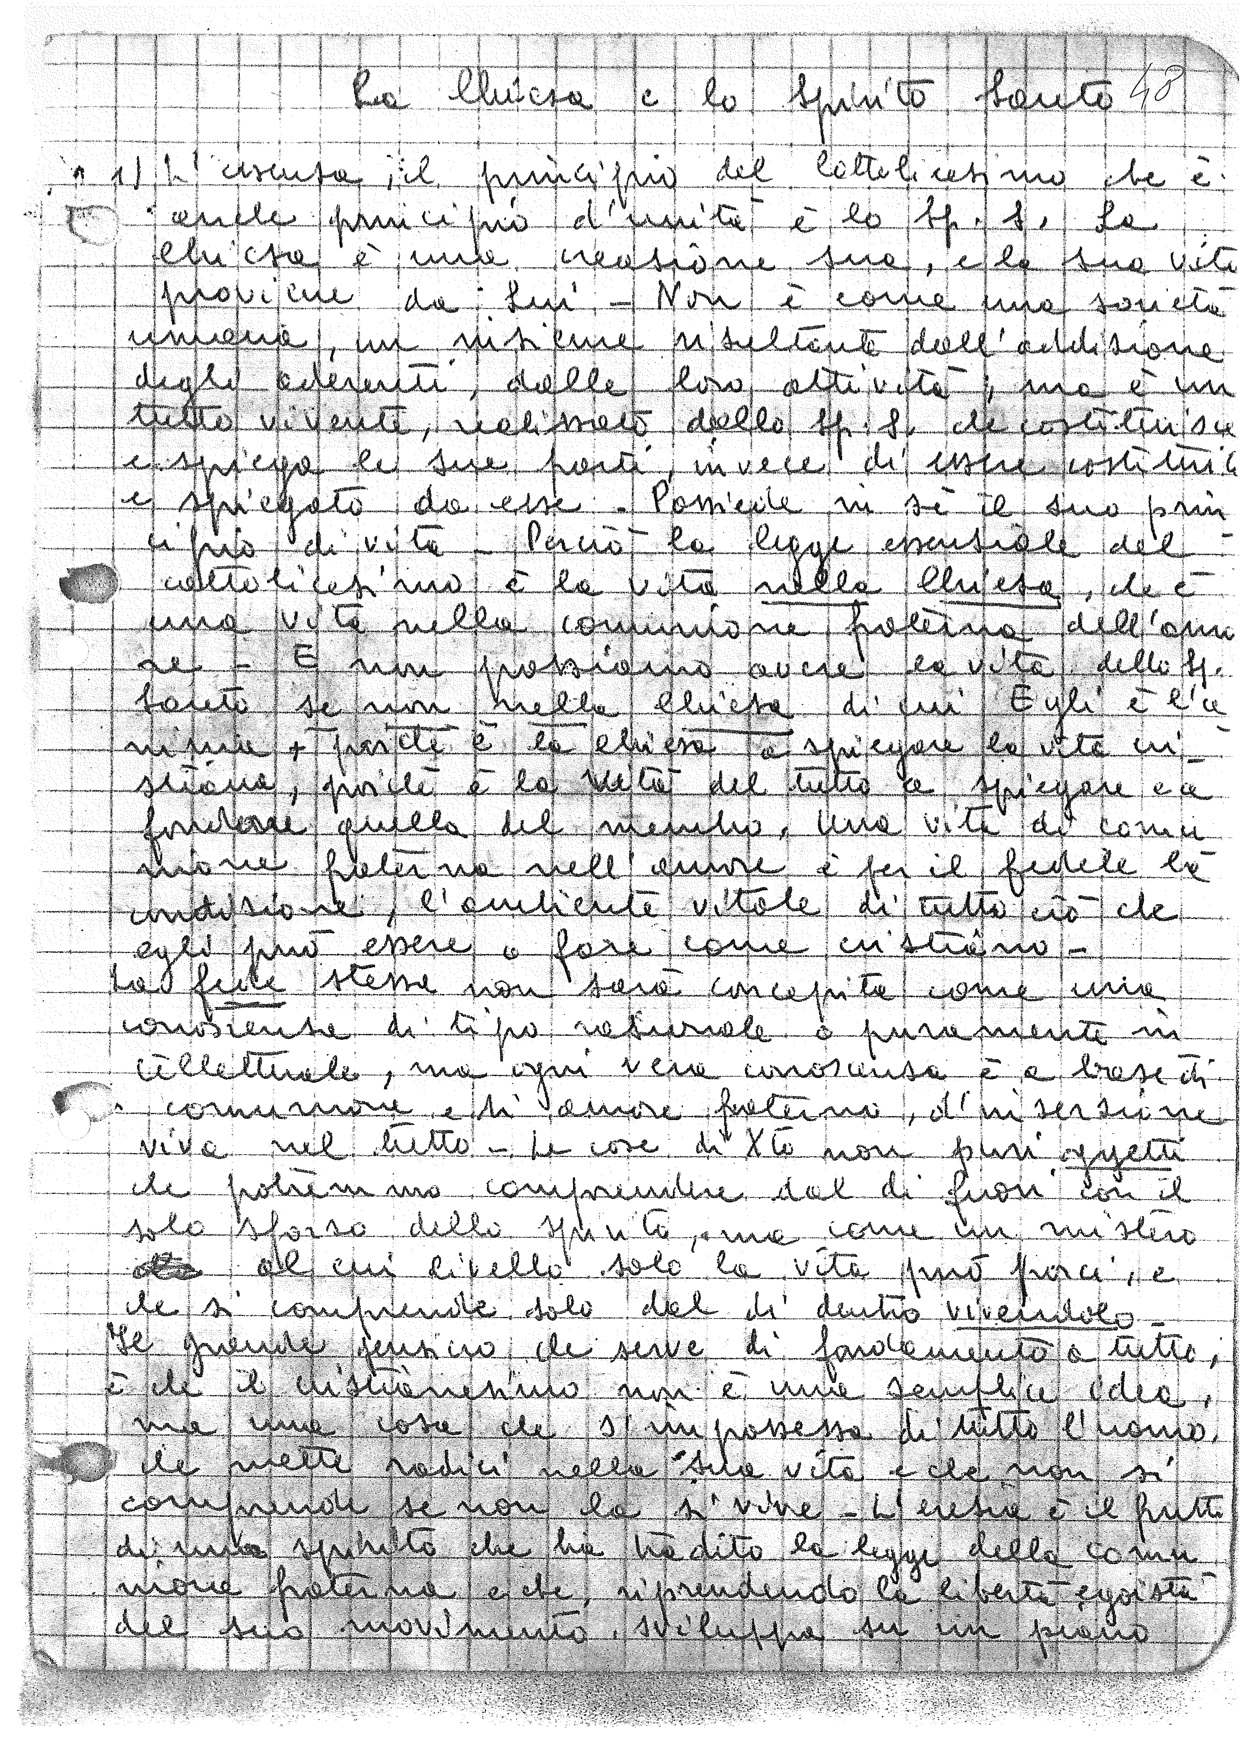 La Chiesa e lo Spirito Santo 48
1) L'essenza, il principio del Cattolicesimo che è
anche principio d'unità è lo Sp. S. La
Chiesa è una creazione sua, e la sua vita
proviene da Lui - Non è come una società
umana, un insieme risultante dall'addizione
degli aderenti, dalle loro attività; ma è un
tutto vivente, realizzato dallo Sp. S. che costituisce
e spiega le sue parti, invece di essere costituito
e spiegato da esse - Possiede in sé il suo prin
cipio di vita - Perciò la legge essenziale del
cattolicesimo è la vita nella Chiesa, che è
una vita nella comunione fraterna dell'amo
re - E non possiamo avere la vita dello Sp.
Santo se non nella Chiesa di cui Egli è l'a
nima, poiché è la Chiesa a spiegare la vita cri
stiana, poiché è la vita del tutto a spiegare e a
fondare quella del membro. Una vita di comu
nione fraterna nell'amore è per il fedele la
condizione, l'ambiente vitale di tutto ciò che
egli può essere o fare come cristiano -
La fede stessa non sarà concepita come una
conoscenza di tipo razionale o puramente in
tellettuale, ma ogni vera conoscenza è a base di
comunione e di amore fraterno, d'inserzione
viva nel tutto - Le cose di Xto non puri oggetti
che potremmo comprendere dal di fuori con il
solo sforzo dello spirito, ma come un mistero
al cui livello solo la vita può porci, e
che si comprende solo dal di dentro vivendolo -
Il grande pensiero che serve di fondamento a tutto,
è che il cristianesimo non è una semplice idea,
ma una cosa che s'impossessa di tutto l'uomo,
che mette radici nella sua vita e che non si
comprende se non la si vive - L'eresia è il frutto
di uno spirito che ha tradito la legge della comu
nione fraterna e che, riprendendo la libertà egoista
del suo movimento, sviluppa su un piano